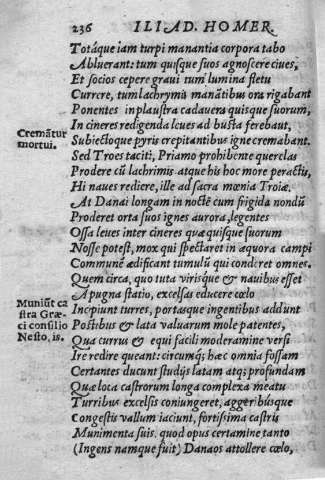 236 ILIAD. HOMER.
Totáque iam turpi manantia corpora tabo
Abluerant: tum quisque suos agnoscere ciues,
Et socios cepere graui tum lumina fletu
Currere, tum lachrymis manātibus ora rigabant
Ponentes in plaustra cadauera quisque suorum,
In cineres redigenda leues ad busta ferebant,
Cremātur
mortui.
Subiectoque pyris crepitantibus igne cremabant.
Sed Troes taciti, Priamo prohibente querelas
Prodere cū lachrimis atque his hoc more peractis,
Hi naues rediere, ille ad sacra mœnia Troiæ.
At Danai longam in noctē cum frigida nondū
Proderet orta suos ignes aurora, legentes
Ossa leues inter cineres quæ quisque suorum
Nosse potest, mox qui spectaret in æquora campi
Communē ædificant tumulū qui conderet omnes.
Quem circa, quo tuta virisque & nauibus esset
Muniūt ca
stra Græ-
ci consilio
Nestoris.
A pugna statio, excelsas educere cœlo
Incipiunt turres, portasque ingentibus addunt
Postibus & lata valuarum mole patentes,
Qua currus & equi facili moderamine versi
Ire redire queant: circumq; hæc omnia fossam
Certantes ducunt studijs latam atq; profundam
Quæ loca castrorum longa complexa meatu
Turribus excelsis coniungeret, aggeribusque
Congestis vallum iaciunt, fortissima castris
Munimenta suis. quod opus certamine tanto
(Ingens namque fuit) Danaos attollere cœlo,